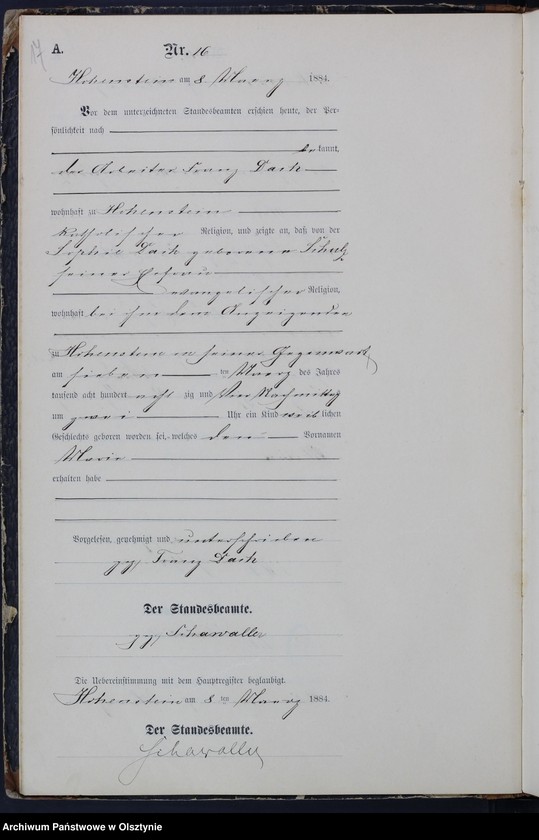 17
A. Nr. 16
Hohenstein am 8 Maerz 1884.
Vor dem unterzeichneten Standesbeamten erschien heute, der Per-
sönlichkeit nach
bekannt,
der Arbeiter Franz Dach
wohnhaft zu Hohenstein
katholischer Religion, und zeigte an, daß von der
Sophie Dach geborene Schulz
seiner Ehefrau
evangelischer Religion,
wohnhaft bei ihm dem Anzeigenden
zu Hohenstein in seiner Gegenwart
am sieben ten Maerz des Jahres
tausend acht hundert acht zig und vier Nachmittag
um zwei Uhr ein Kind weiblichen
Geschlechts geboren worden sei, welches den Vornamen
Marie
erhalten habe
Vorgelesen, genehmigt und unterschrieben
gez. Franz Dach
Der Standesbeamte.
gez. Schawaller
Die Uebereinstimmung mit dem Hauptregister beglaubigt.
Hohenstein am 8 ten Maerz 1884.
Der Standesbeamte.
Schawaller
Archiwum Państwowe w Olsztynie